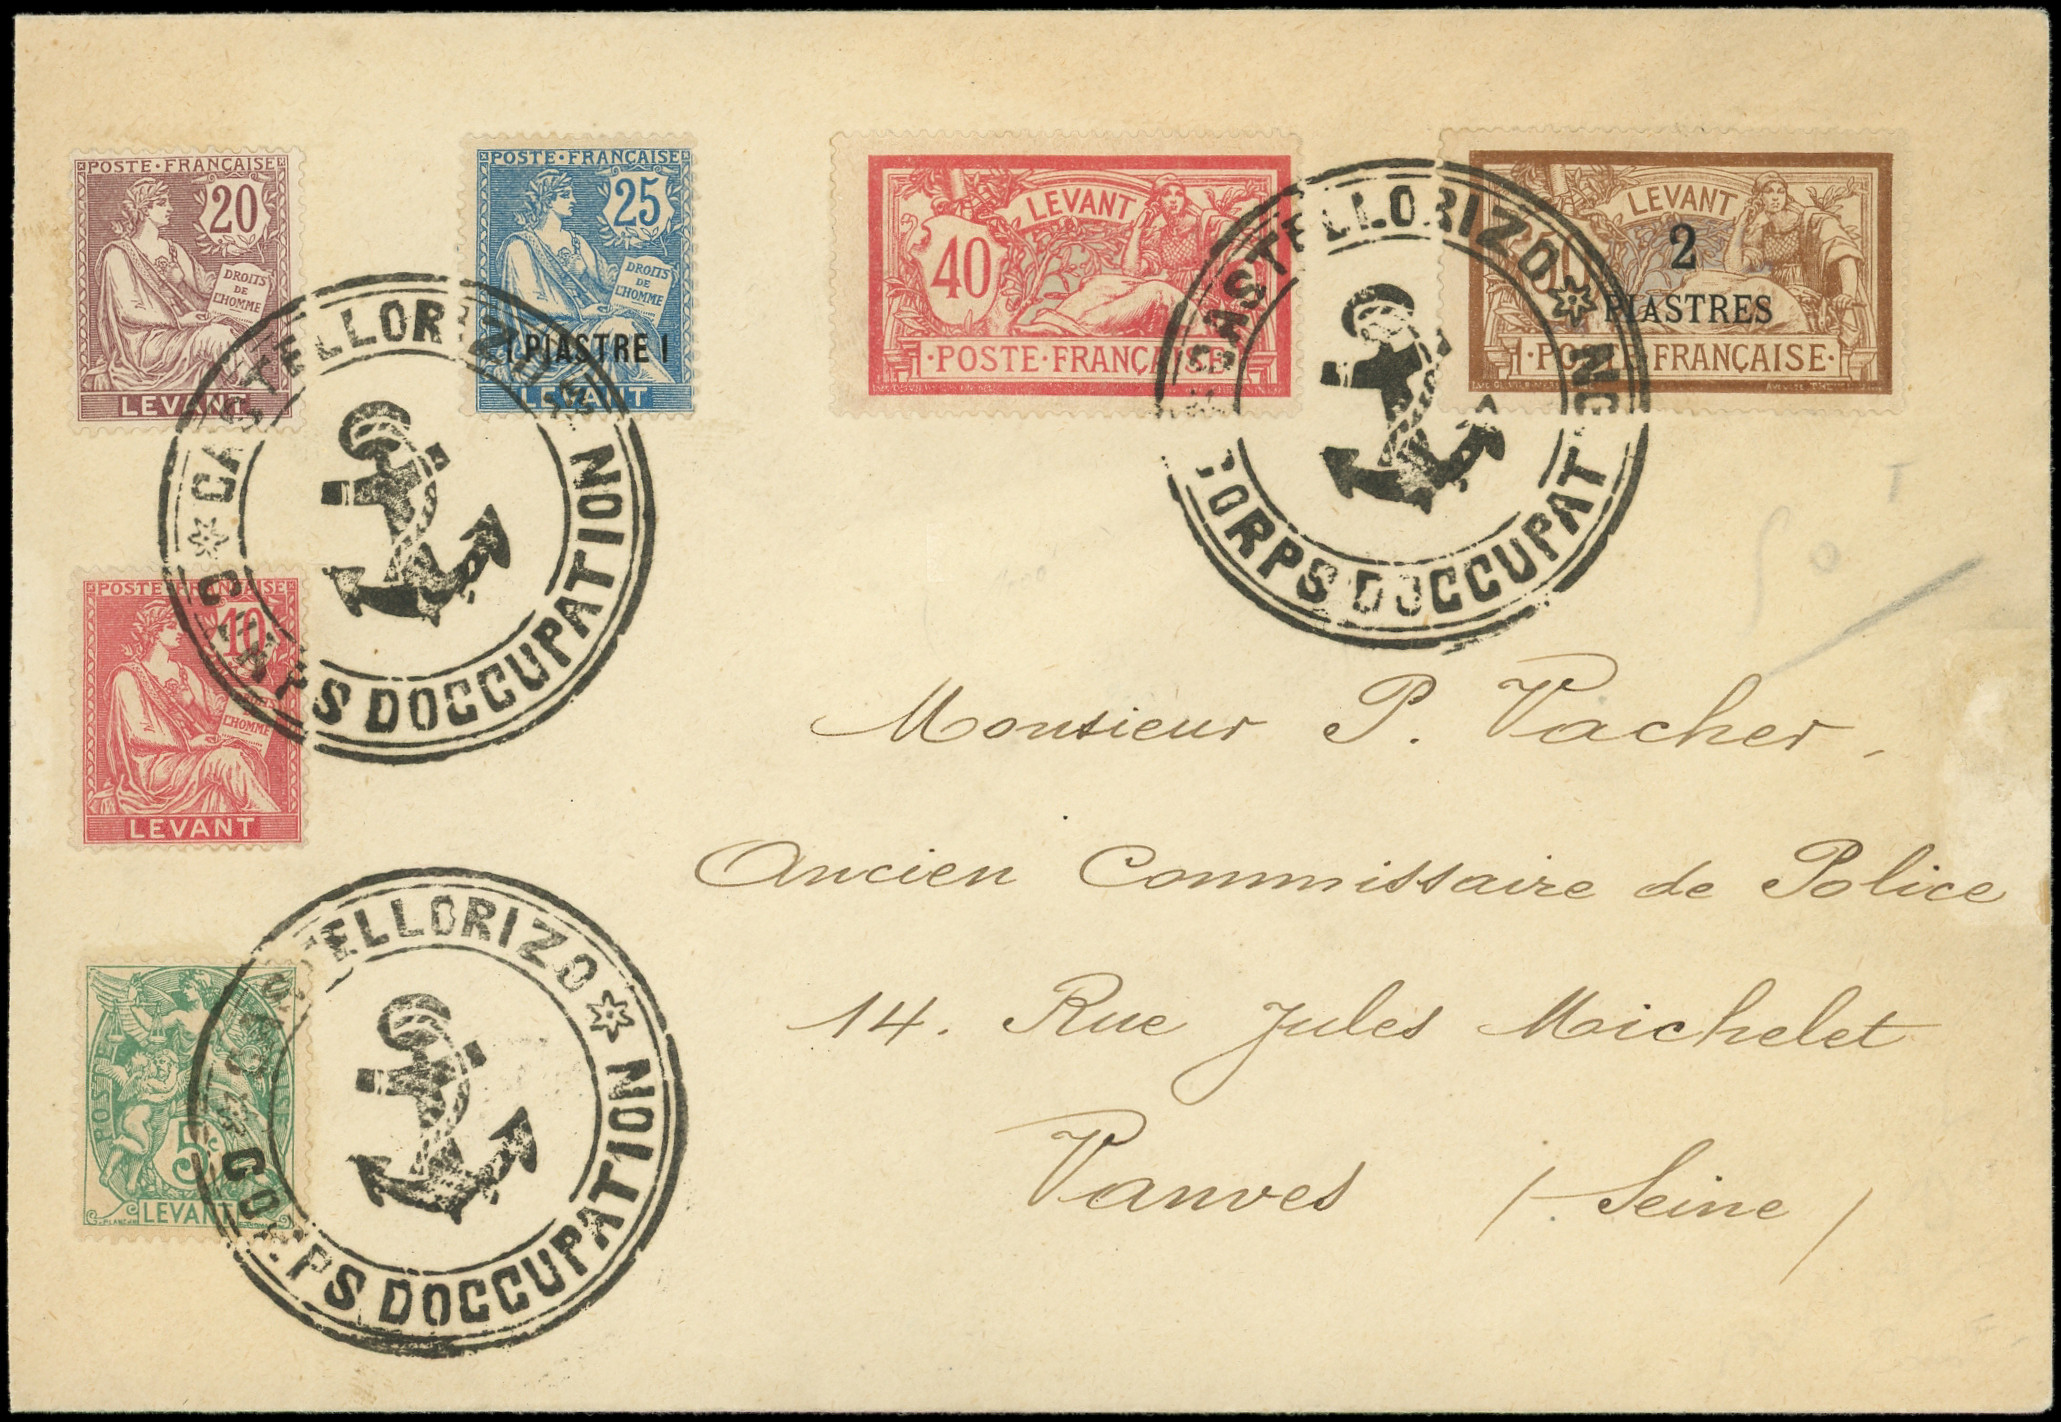 POSTE·FRANÇAISE
20
DROITS
DE
L'HOMME
LEVANT
POSTE·FRANÇAISE
25
DROITS
DE
L'HOMME
1 PIASTRE 1
LEVANT
LEVANT
40
·POSTE·FRANÇAISE·
LEVANT
2
PIASTRES
·POSTE·FRANÇAISE·
CASTELLORIZO
CORPS D'OCCUPATION
CASTELLORIZO
CORPS D'OCCUPATION
POSTE·FRANÇAISE
10
L'HOMME
LEVANT
Monsieur P. Vacher,
Ancien Commissaire de Police
14. Rue Jules Michelet
Vanves / Seine /
POSTE
5c
LEVANT
CASTELLORIZO
CORPS D'OCCUPATION